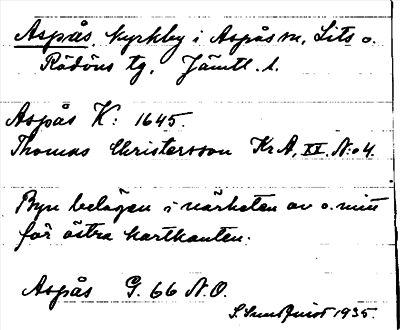 Aspås, kyrkby i Aspås sn, Lits o.
Rödöns tg, Jämtl. l.
Aspås K: 1645.
Thomas Christersson KrA, XV, N:o 4.
Byn belägen i närheten av o. mitt
för östra kartkanten.
Aspås G. 66 N.O.
1935.